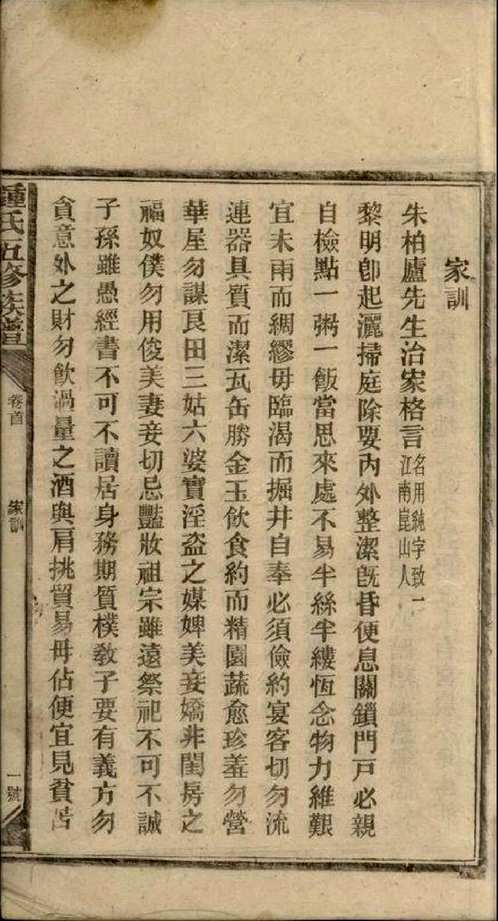 家訓
朱柏廬先生治家格言名用純字致一
江南崑山人
黎明卽起灑掃庭除要內外整潔旣昏便息關鎖門戶必親
自檢點一粥一飯當思來處不易半絲半縷恆念物力維艱
宜未雨而綢繆毋臨渴而掘井自奉必須儉約宴客切勿流
連器具質而潔瓦缶勝金玉飲食約而精園蔬愈珍羞勿營
華屋勿謀良田三姑六婆實淫盜之媒婢美妾嬌非閨房之
福奴僕勿用俊美妻妾切忌豔妝祖宗雖遠祭祀不可不誠
子孫雖愚經書不可不讀居身務期質樸教子要有義方勿
貪意外之財勿飲過量之酒與肩挑貿易毋佔便宜見貧苦
鍾氏五修族譜
卷首
家訓
一號